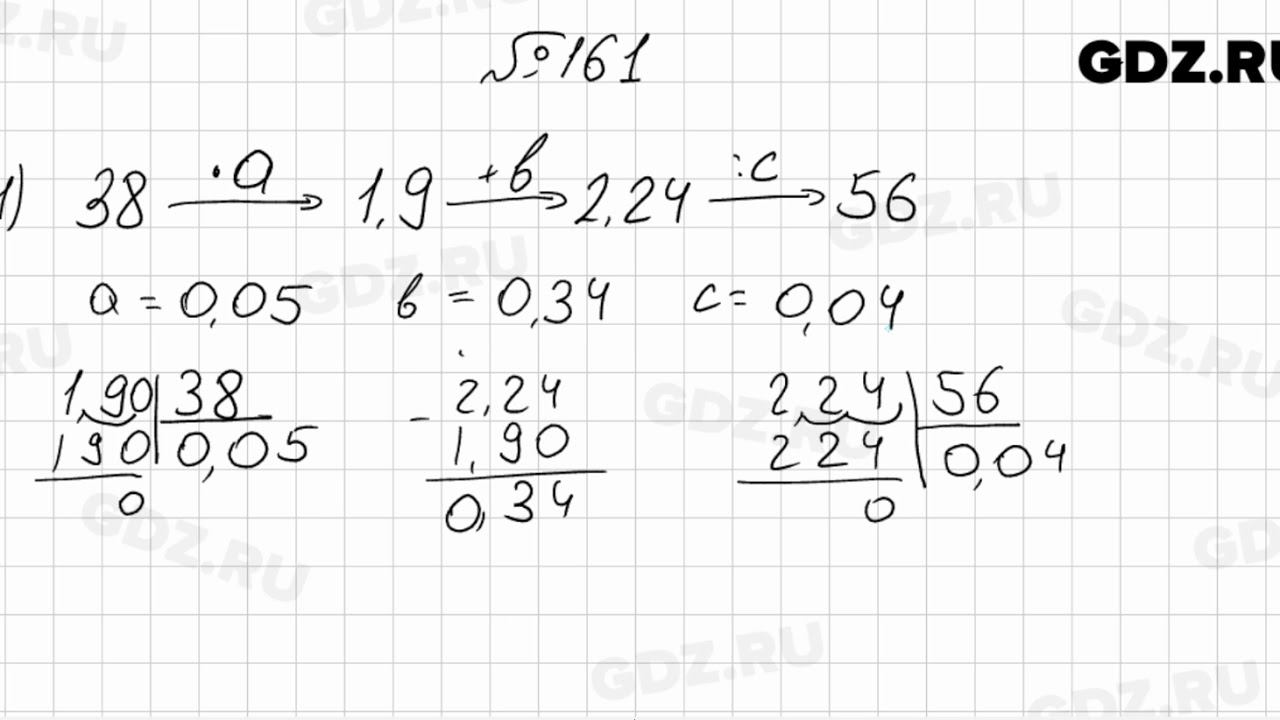 №161
GDZ.RU
1) 38 —·a→ 1,9 —+b→ 2,24 —:c→ 56
a = 0,05 b = 0,34 c = 0,04
1,90 | 38 - 2,24 2,24 | 56
190 | 0,05 1,90 224 | 0,04
0 0,34 0